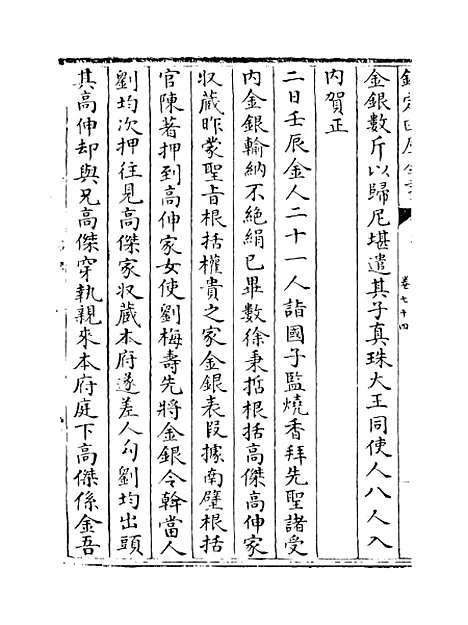 卷七十四
金銀數斤以歸尼堪遣其子真珠大王同使人八人入
内賀正
二日壬辰金人二十一人詣國子監燒香拜先聖諸受
内金銀輸納不絶絹已畢數徐秉哲根括高傑高伸家
収蔵昨蒙聖旨根括權貴之家金銀表段據南壁根括
官陳著押到高伸家女使劉梅壽先將金銀令幹當人
劉均次押往見高傑家収蔵本府遂差人勾劉均出頭
其高伸却與兄高傑穿執親來本府庭下高傑係金吾